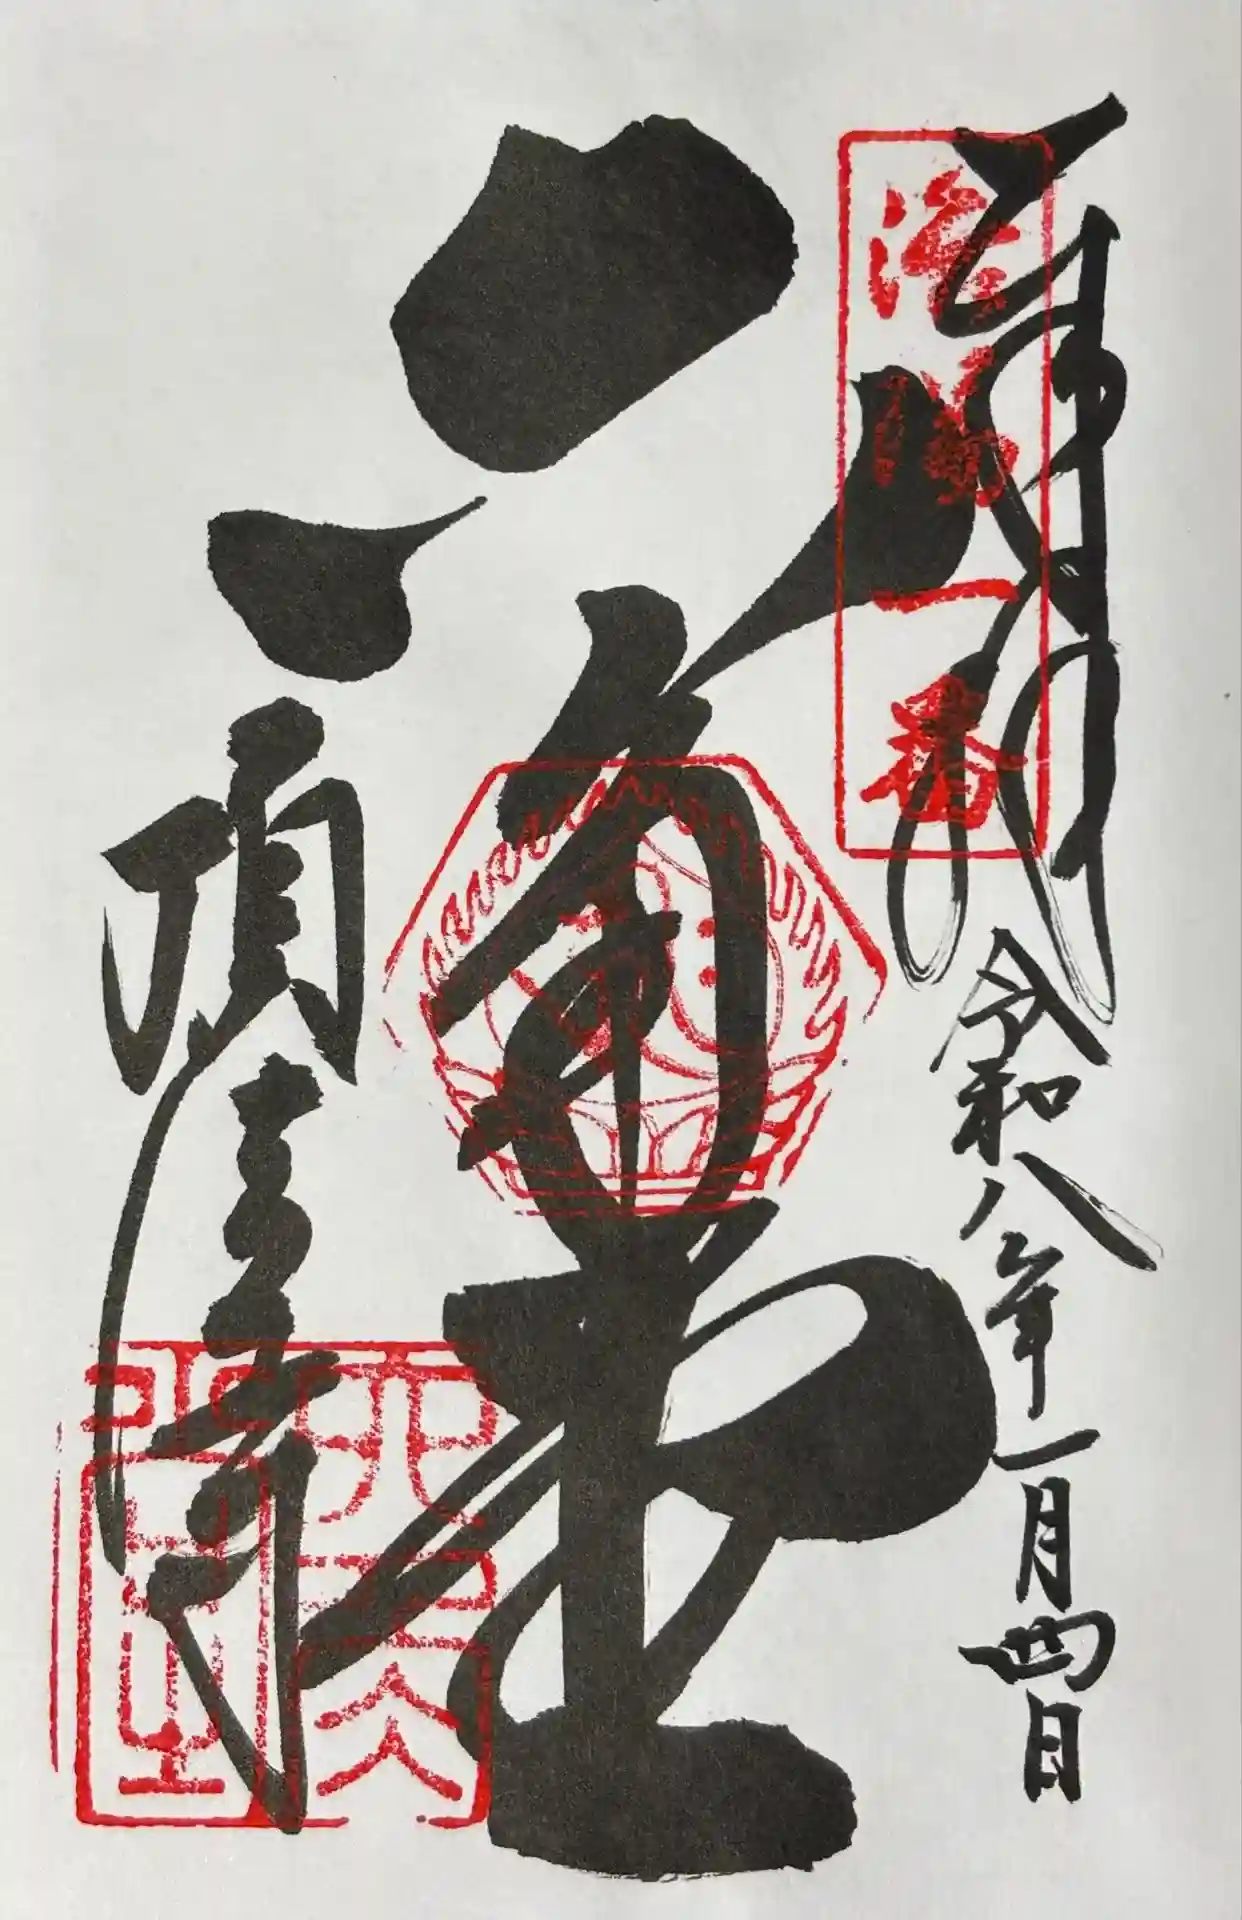 奉拝
令和八年一月四日
洛陽一番
六角堂
頂法寺